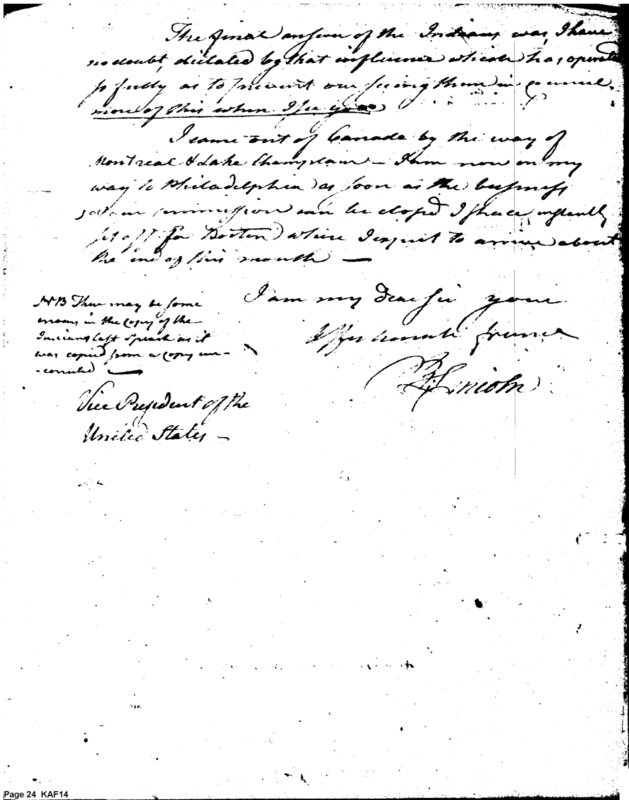 The final answer of the Indians was, I have
no doubt, dictated by that influence which has operated
so fully as to prevent our seeing them in council.
more of this when I see you
I came out of Canada by the way of
Montreal & Lake Champlain – I am now on my
way to Philadelphia as soon as the business
of our commission can be closed I shall instantly
set off for Boston where I expect to arrive about
the end of this month —
I am my dear Sir your
Affectionate friend
B Lincoln
NB There may be some
errours in the copy of the
Indians last Speach as it
was copied from a copy un-
-corrected —
Vice President of the
United States –
Page 24 KAF14